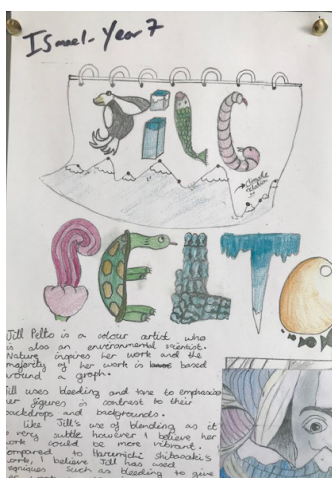 Ismael - Year 7
Jill
Climate
PELTO
Jill Pelto is a colour artist who
is also an environmental scientist.
Nature inspires her work and the
majority of her work is based
around a graph.
Jill uses bleeding and tone to emphasise
her figures in contrast to their
backdrops and backgrounds.
I like Jill's use of blending as it
is very subtle however I believe her
work could be more vibrant.
Compared to Harumichi Shibasaki's
work, I believe Jill has used
techniques such as bleeding to give